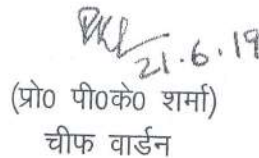 21.6.19
(प्रो0 पी0के0 शर्मा)
चीफ वार्डन